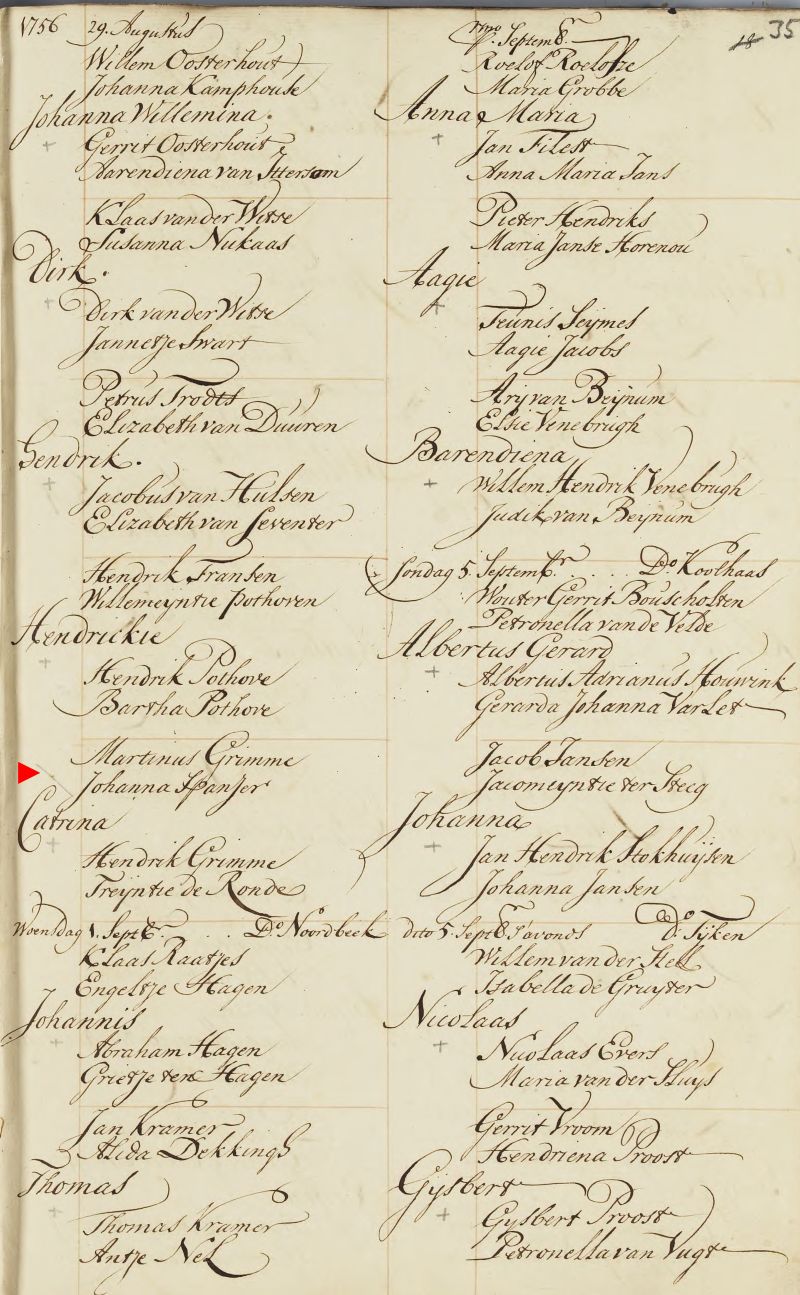 1756 29. Augustus
Willem Oosterhout
Johanna Kamphouse
Johanna Willemina.
Gerrit Oosterhout
Aarendiena van Ittersom
Klaas van der Witse
Susanna Nukaas
Dirk.
Dirk van der Witse
Jannetje Swart
Petrus Trodts
Elizabeth van Duuren
Hendrik.
Jacobus van Hulsen
Elizabeth van Seventer
Hendrik Fransen
Willemeyntie Pothoven
Hendrickie
Hendrik Pothove
Bartha Pothove
Martinus Grimme
Johanna Spanjer
Catrina
Hendrik Grimme
Treijntie de Ronde
Woensdag 1. Sept. . . . Do. Noordbeek
Klaas Raatjes
Engeltje Hagen
Johannis
Abraham Hagen
Grietje ten Hagen
Jan Kramer
Alida Dekkingh
Thomas
Thomas Kramer
Antje Nel
18 35
Septem8r
Roelof Roelofze
Maria Grobbe
Anna Maria
Jan Filest
Anna Maria Jans
Pieter Hendriks
Maria Janse Horenou
Aagie
Teunis Seijmes
Aagie Jacobs
Ary van Beijnum
Elsie Venebrugh
Barendiena
Willem Hendrik Venebrugh
Judik van Beijnum
Sondag 5. Septemr. . . . Do. Koolhaas
Wouter Gerrit Bouscholten
Petronella van de Velde
Albertus Gerard
Albertus Adrianus Houwink
Gerarda Johanna Varlet
Jacob Jansen
Jacomeyntie ter Steeg
Johanna
Jan Hendrik Stokhuijsen
Johanna Jansen
dito 5. Sept8r S'avonds Do. Tyken
Willem van der Stell
Isabella de Gruyter
Nicolaas
Nicolaas Evers
Maria van der Sluys
Gerrit Vroom
Hendriena Proost
Gysbert
Gysbert Proost
Petronella van Vugt